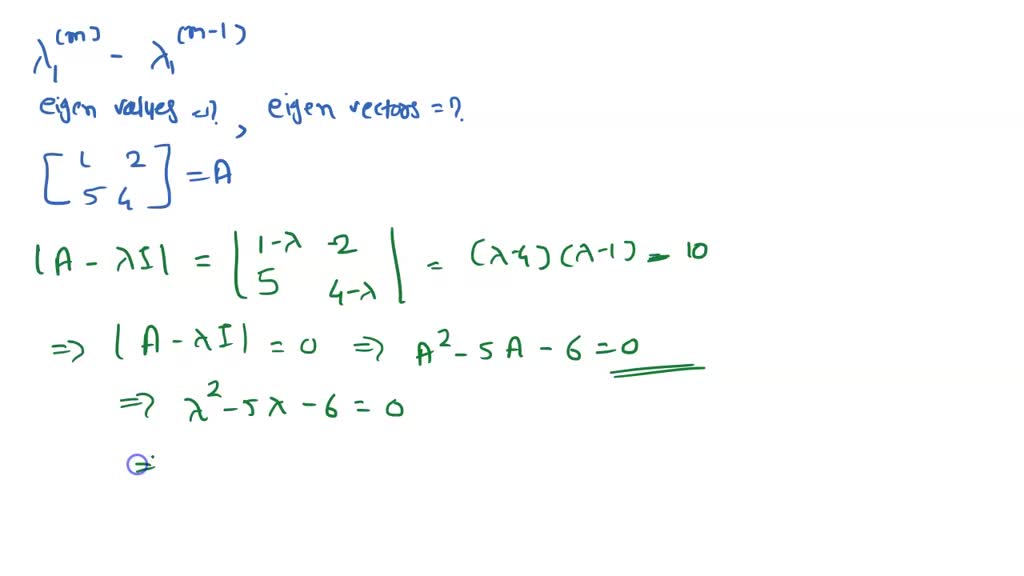 λ₁⁽ᵐ⁾ - λ₁⁽ᵐ⁻¹⁾
eigen values =?, eigen vectors =?
[1 2
5 4] = A
|A - λI| = |1-λ 2
5 4-λ| = (λ-4)(λ-1) - 10
⇒ |A - λI| = 0 ⇒ A² - 5A - 6 = 0
⇒ λ² - 5λ - 6 = 0
=